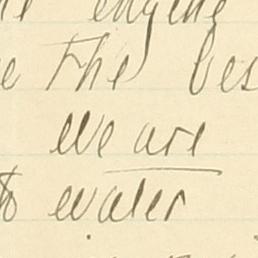 engine
The bes
we are
to water